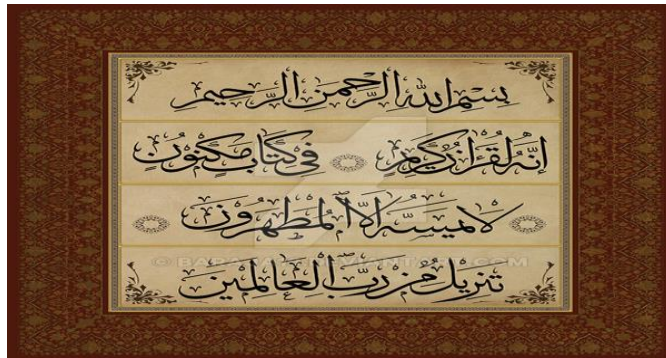 بِسْمِ اللهِ الرَّحْمنِ الرَّحِيمِ
إِنَّهُ لَقُرْآنٌ كَرِيمٌ فِي كِتَابٍ مَكْنُونٍ
لَا يَمَسُّهُ إِلَّا الْمُطَهَّرُونَ
تَنْزِيلٌ مِنْ رَبِّ الْعَالَمِينَ